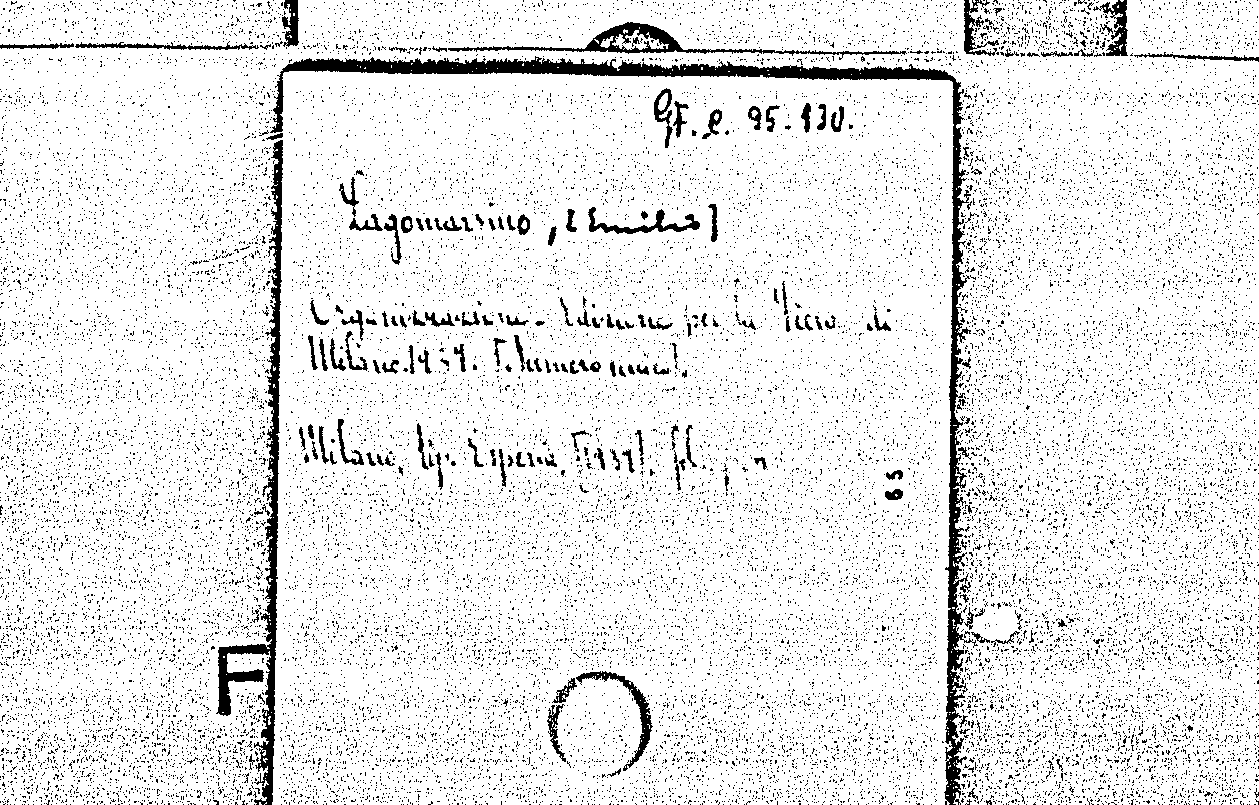 GF. e. 95. 130.
Lagomarsino, [Emilio]
Organizzazione. Edizione per la Fiera di
Milano. 1937. [Numero unico].
Milano, tip. Esperia, [1937]. fol. p.
65
F